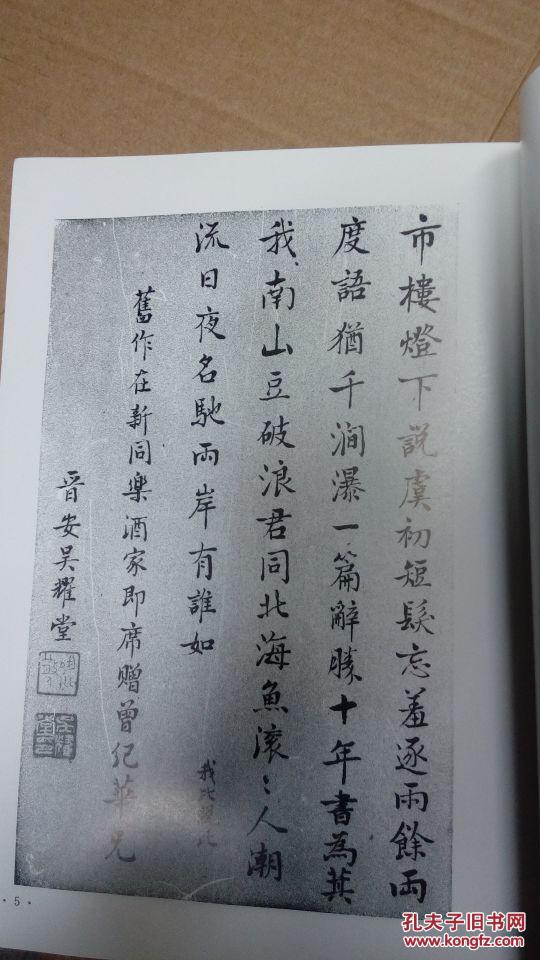 市樓燈下説虞初短髮忘羞逐雨餘兩
度語猶千澗瀑一篇辭勝十年書為萁
我南山豆破浪君同北海魚滾〻人潮
流日夜名馳兩岸有誰如
舊作在新同樂酒家即席赠曾纪華兄
晋安吴耀堂
·5·
孔夫子旧书网
www.kongfz.com